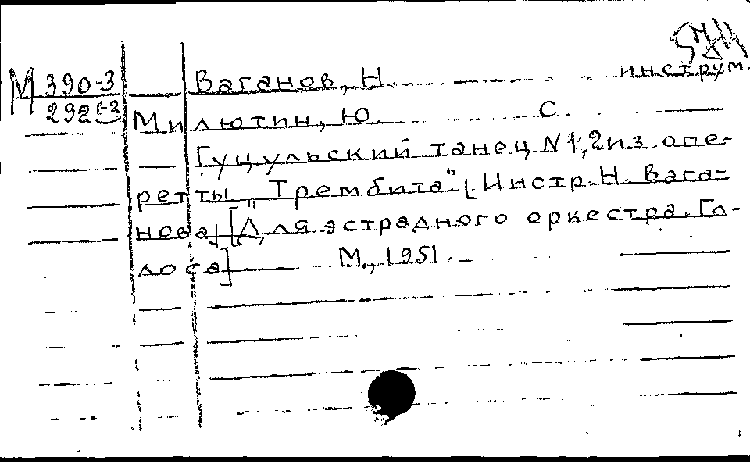 М 390-3 Ваганов, Н. инструм.
292
Милютин, Ю. С.
Гуцульский танец №1, 2 из опе-
ретты „Трембита" [Инстр. Н. Вага-
нова] [Для эстрадного оркестра. Го-
лоса] М., 1951. -